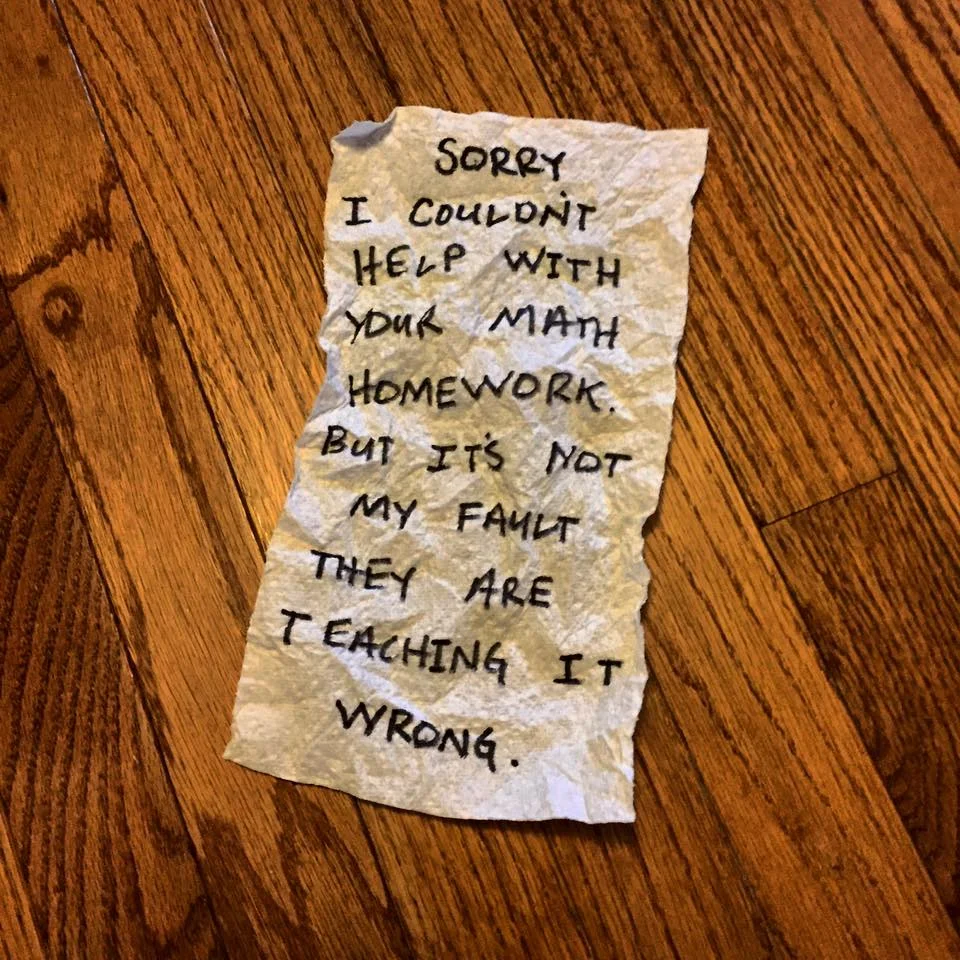 SORRY
I COULDN'T
HELP WITH
YOUR MATH
HOMEWORK.
BUT IT'S NOT
MY FAULT
THEY ARE
TEACHING IT
WRONG.